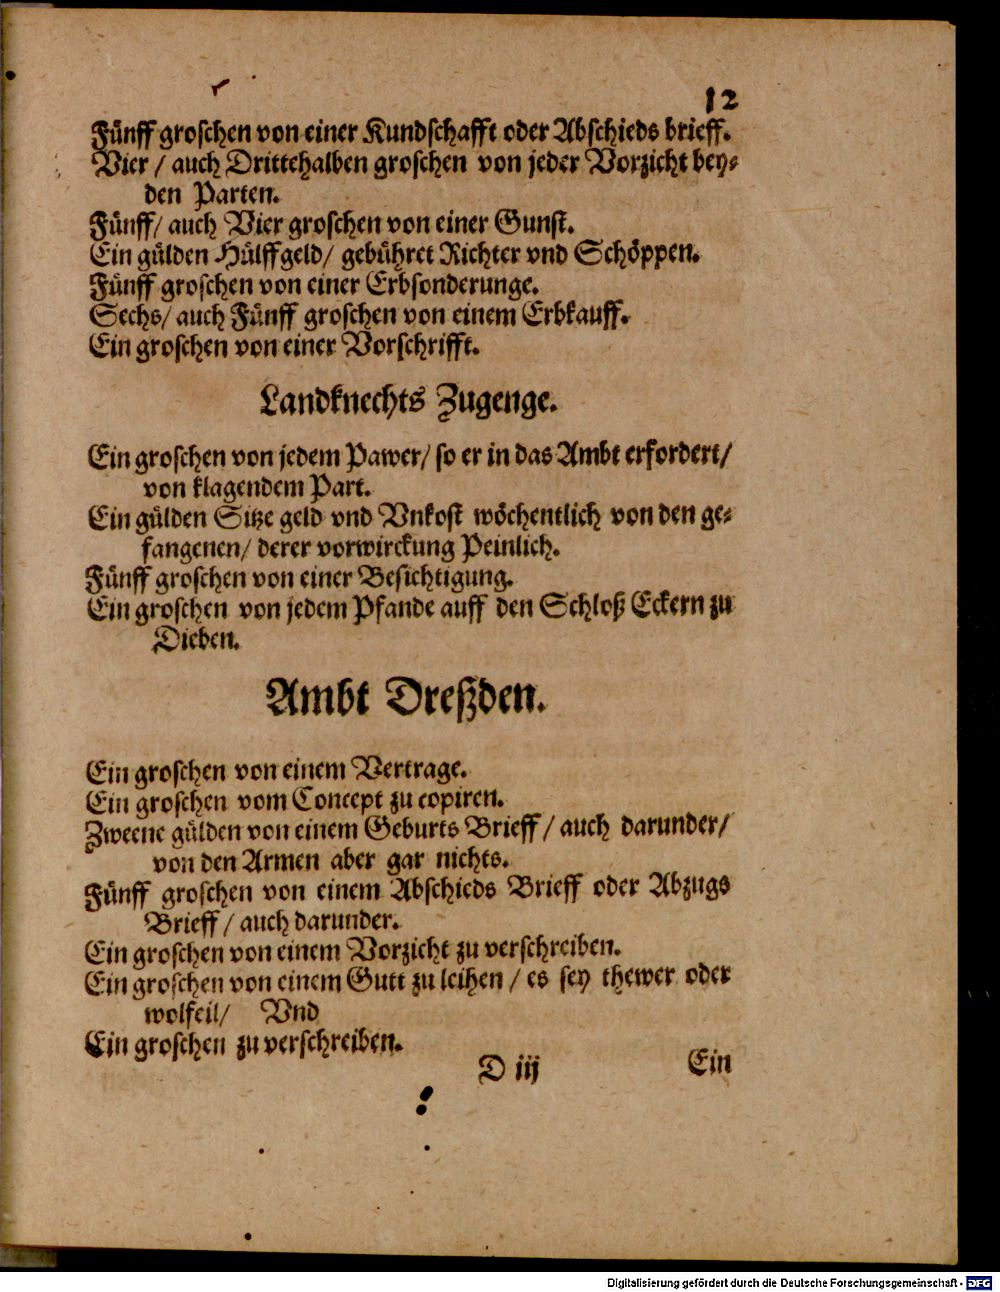 12
Fünff groschen von einer Kundschafft oder Abschieds brieff.
Vier / auch Drittehalben groschen von jeder Vorzicht bey⸗
den Parten.
Fünff / auch Vier groschen von einer Gunst.
Ein gülden Hülffgeld / gebühret Richter vnd Schöppen.
Fünff groschen von einer Erbsonderunge.
Sechs / auch Fünff groschen von einem Erbkauff.
Ein groschen von einer Vorschrifft.
Landknechts Zugenge.
Ein groschen von jedem Pawer / so er in das Ambt erfordert /
von klagendem Part.
Ein gülden Sitze geld vnd Vnkost wöchentlich von den ge⸗
fangenen / derer vorwirckung Peinlich.
Fünff groschen von einer Besichtigung.
Ein groschen von jedem Pfande auff den Schloß Eckern zu
Dieben.
Ambt Dreßden.
Ein groschen von einem Vertrage.
Ein groschen vom Concept zu copiren.
Zweene gülden von einem Geburts Brieff / auch darunder /
von den Armen aber gar nichts.
Fünff groschen von einem Abschieds Brieff oder Abzugs
Brieff / auch darunder.
Ein groschen von einem Vorzicht zu verschreiben.
Ein groschen von einem Gutt zu leihen / es sey thewer oder
wolfeil / Vnd
Ein groschen zu verschreiben.
D iij Ein
Digitalisierung gefördert durch die Deutsche Forschungsgemeinschaft - DFG